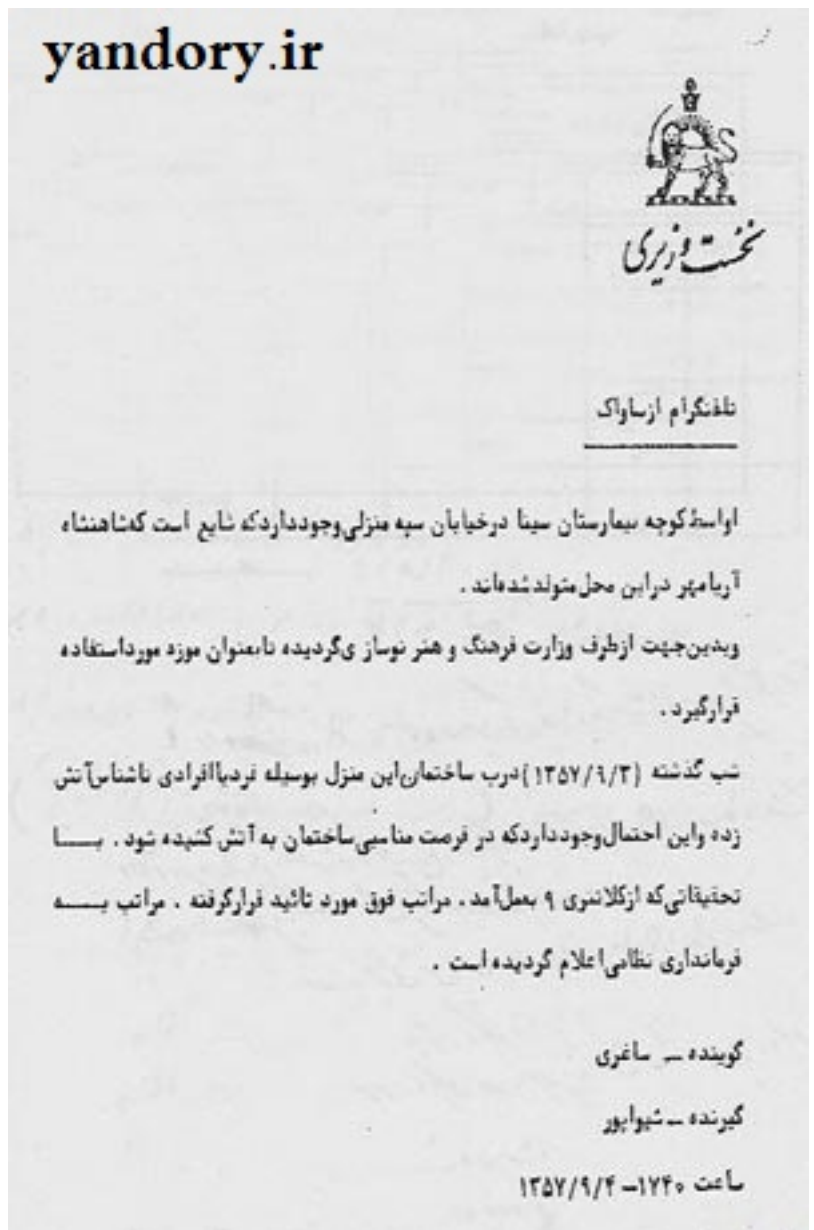 yandory.ir
نخست وزیری
تلفنگرام ازساواک
اواسط کوچه بیمارستان سینا درخیابان سپه منزلی وجوددارد که شایع است که شاهنشاه
آریامهر دراین محل متولد شده‌اند .
وبدین جهت ازطرف وزارت فرهنگ و هنر نوساز ی گردیده تا بعنوان موزه مورد استفاده
قرارگیرد .
شب گذشته (۱۳۵۷/۹/۳) درب ساختمان این منزل بوسیله فردیا افرادی ناشناس آتش
زده واین احتمال وجوددارد که در فرصت مناسبی ساختمان به آتش کشیده شود . بـــا
تحقیقاتی که ازکلانتری ۹ بعمل آمد . مراتب فوق مورد تائید قرارگرفته . مراتب بـــه
فرمانداری نظامی اعلام گردیده است .
گوینده ــ ساغری
گیرنده ــ شیواپور
ساعت ۱۷۴۰ــ ۱۳۵۷/۹/۴